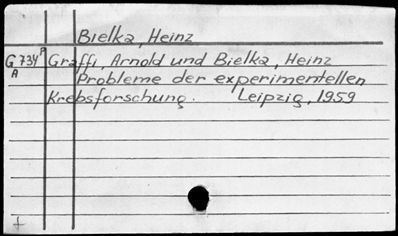 Bielka, Heinz
G 734ᴬ Graffi, Arnold und Bielka, Heinz
A Probleme der experimentellen
Krebsforschung. Leipzig, 1959